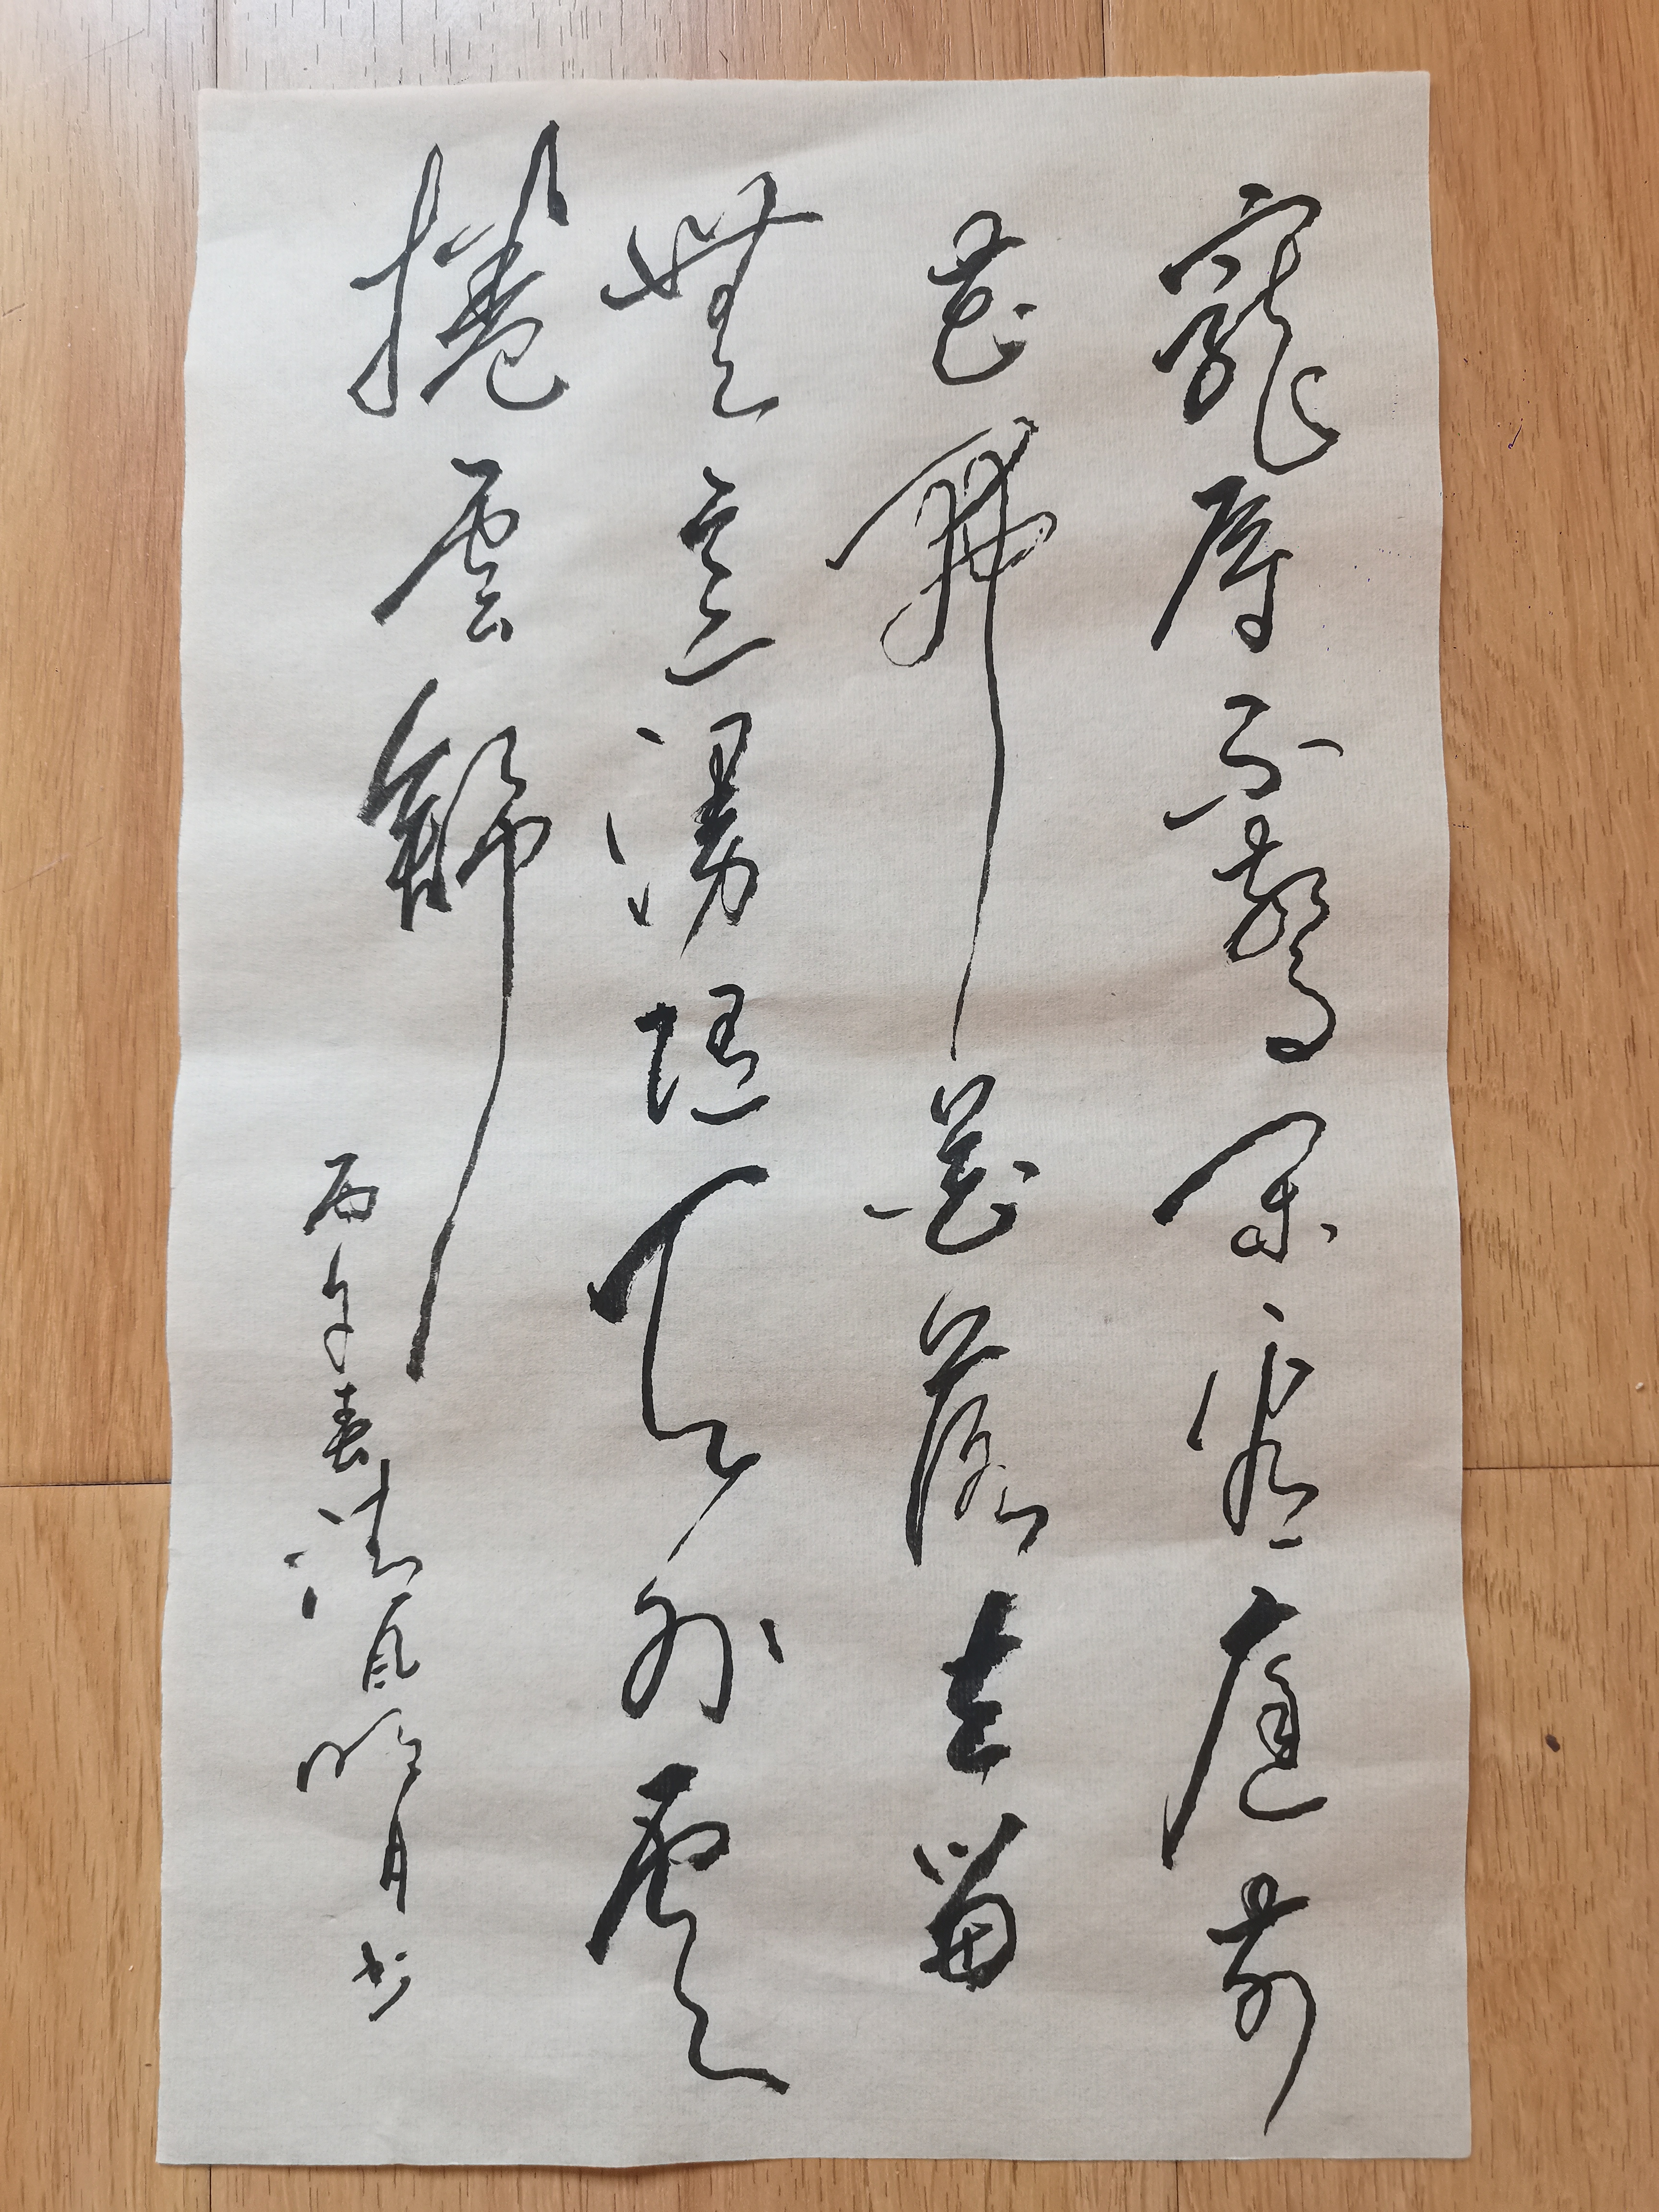 寵辱不驚閑看庭前
花開花落去留
無意漫隨天外雲
捲雲舒
丙午春清風明月书